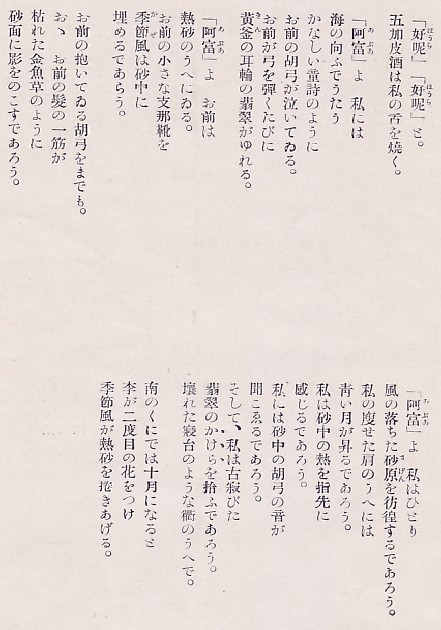 「好呢」「好呢」と。
五加皮酒は私の舌を燒く。
「阿富」よ 私には
海の向ふでうたう
かなしい童詩のように
お前の胡弓が泣いてゐる。
お前が弓を彈くたびに
黃釜の耳輪の翡翠がゆれる。
「阿富」よ お前は
熱砂のうへにゐる。
お前の小さな支那靴を
季節風は砂中に
埋めるであらう。
お前の抱いてゐる胡弓をまでも。
おゝ お前の髮の一筋が
枯れた金魚草のように
砂面に影をのこすであろう。
「阿富」よ 私はひとり
風の落ちた砂原を彷徨するであろう。
私の瘦せた肩のうへには
靑い月が昇るであろう。
私は砂中の熱を指先に
感じるであろう。
私には砂中の胡弓の音が
聞こゑるであろう。
そして、私は古寂びた
翡翠のかけらを拾ふであろう。
壞れた寢台のような衢のうへで。
南のくにでは十月になると
李が二度目の花をつけ
季節風が熱砂を捲きあげる。